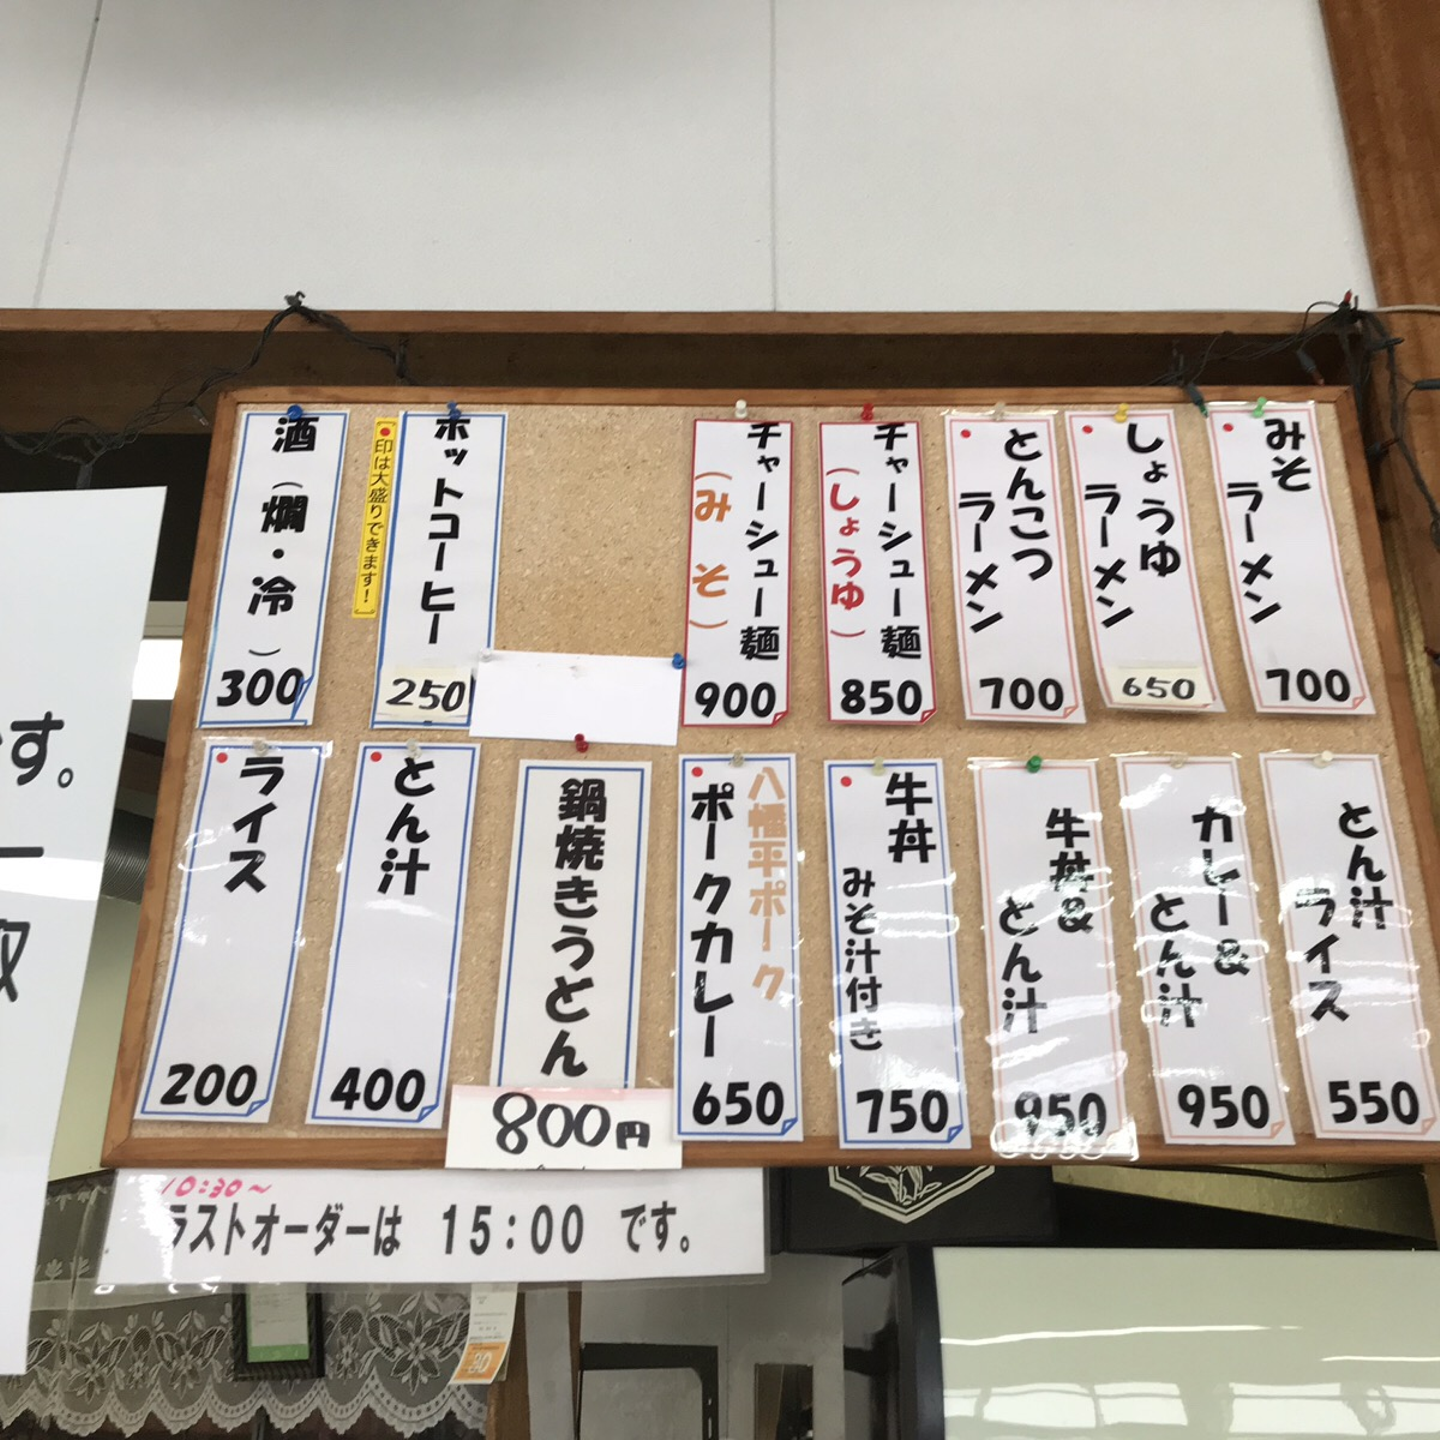 みそ
ラーメン
700
しょうゆ
ラーメン
650
とんこつ
ラーメン
700
チャーシュー麺
（しょうゆ）
850
チャーシュー麺
（みそ）
900
ホットコーヒー
250
【●印は大盛りできます！】
酒（燗・冷）
300
とん汁
ライス
550
カレー&
とん汁
950
牛丼&
とん汁
950
牛丼
みそ汁付き
750
八幡平ポーク
ポークカレー
650
鍋焼きうどん
800円
とん汁
400
ライス
200
10:30～
ラストオーダーは 15:00 です。
す。